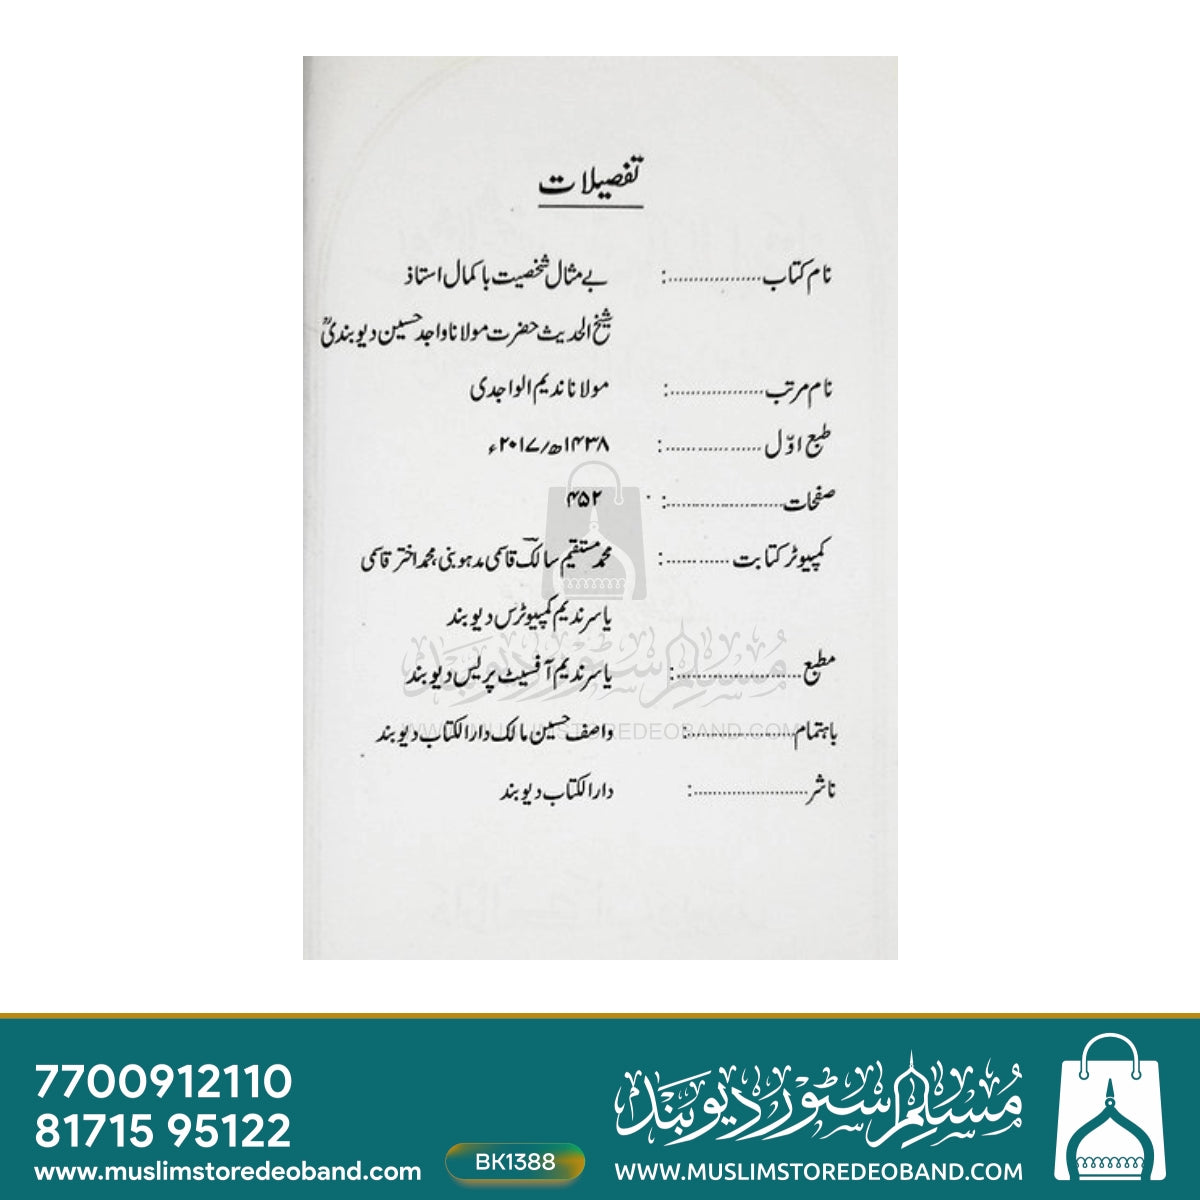 تفصیلات
نام کتاب ..................: بے مثال شخصیت باکمال استاذ
شیخ الحدیث حضرت مولانا واجد حسین دیوبندیؒ
نام مرتب ..................: مولانا ندیم الواجدی
طبع اوّل ..................: ۱۴۳۸ھ/۲۰۱۷ء
صفحات ......................: ۴۵۲
کمپیوٹر کتابت ............: محمد مستقیم سالکؔ قاسمی مدہوبنی، محمد اختر قاسمی
یاسر ندیم کمپیوٹرس دیوبند
مطبع ........................: یاسر ندیم آفسیٹ پریس دیوبند
باہتمام .....................: واصف حسین مالک دارالکتاب دیوبند
ناشر ......................: دارالکتاب دیوبند
مسلم سٹور دیوبند
WWW.MUSLIMSTOREDEOBAND.COM
7700912110
81715 95122
www.muslimstoredeoband.com
BK1388
مسلم سٹور دیوبند
WWW.MUSLIMSTOREDEOBAND.COM